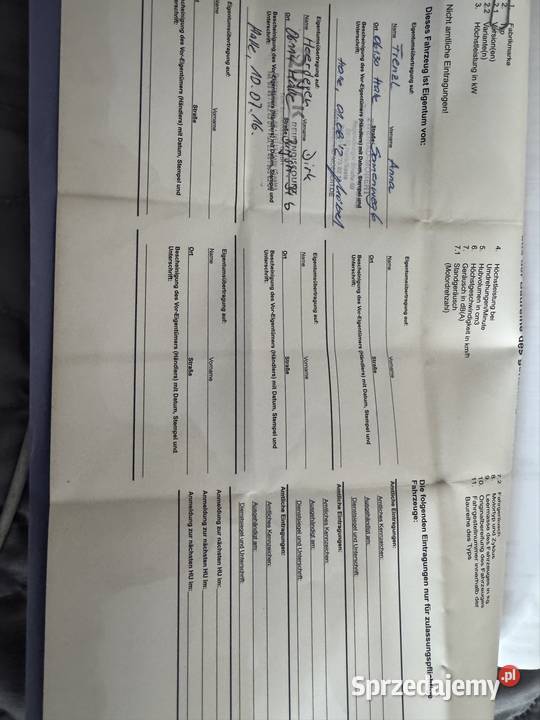 1. Fabrikmarke
2. Typ
2.1 Version(en)
2.2 Variante(n)
3. Höchstleistung in kW
4. Höchstleistung bei
Umdrehungen/Minute
5. Hubvolumen in cm3
6. Höchstgeschwindigkeit in km/h
7. Geräusch in dB(A)
7.1 Standgeräusch
(Motordrehzahl)
7.2 Fahrgeräusch
8. Motortyp und Zyklus
9. Leermasse des Fahrzeuges in kg
10. Originalbereifung des Fahrzeuges
11. Fahrgestellnummer innerhalb der
Baureihe des Typs
Nicht amtliche Eintragungen!
Dieses Fahrzeug ist Eigentum von:
Eigentumsübertragung auf:
Name Frenzl Vorname Anna
Ort 06130 Halle Straße
Bescheinigung des Vor-Eigentümers (Händlers) mit Datum, Stempel und
Unterschrift:
Eigentumsübertragung auf:
Name Heerdegen Vorname Dirk
Ort Halle Straße
Bescheinigung des Vor-Eigentümers (Händlers) mit Datum, Stempel und
Unterschrift:
Halle, 10.07.16.
Eigentumsübertragung auf:
Name Vorname
Ort Straße
Bescheinigung des Vor-Eigentümers (Händlers) mit Datum, Stempel und
Unterschrift:
Eigentumsübertragung auf:
Name Vorname
Ort Straße
Bescheinigung des Vor-Eigentümers (Händlers) mit Datum, Stempel und
Unterschrift:
Eigentumsübertragung auf:
Name Vorname
Ort Straße
Bescheinigung des Vor-Eigentümers (Händlers) mit Datum, Stempel und
Unterschrift:
Eigentumsübertragung auf:
Name Vorname
Ort Straße
Bescheinigung des Vor-Eigentümers (Händlers) mit Datum, Stempel und
Unterschrift:
Die folgenden Eintragungen nur für zulassungspflichtige
Fahrzeuge:
Amtliche Eintragungen:
Amtliches Kennzeichen:
Ausgehändigt am:
Dienstsiegel und Unterschrift:
Amtliche Eintragungen:
Amtliches Kennzeichen:
Ausgehändigt am:
Dienstsiegel und Unterschrift:
Amtliche Eintragungen:
Amtliches Kennzeichen:
Ausgehändigt am:
Dienstsiegel und Unterschrift:
Anmeldung zur nächsten HU im:
Anmeldung zur nächsten HU im:
Anmeldung zur nächsten HU im:
Sprzedajemy.pl